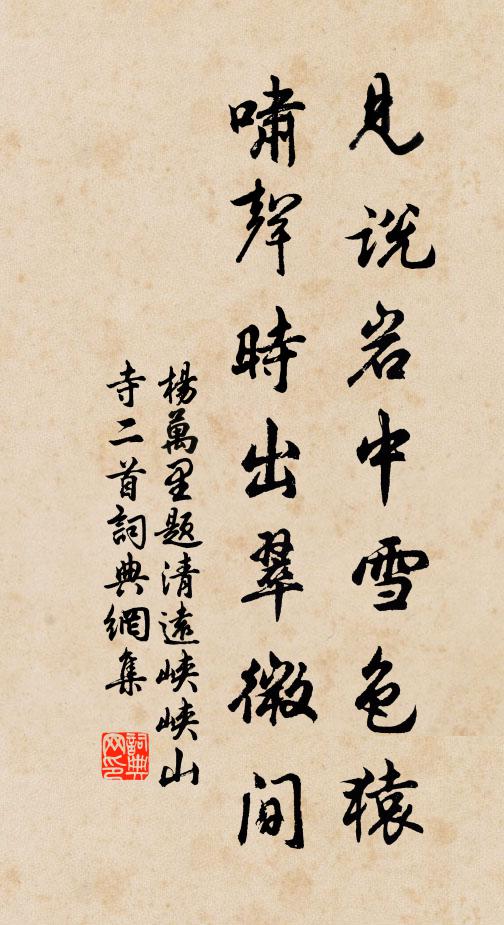 見説岩中雪色猿
嘯聲時出翠微間
楊萬里題清遠峽峽山
寺二首詞典網集
詞典
网印